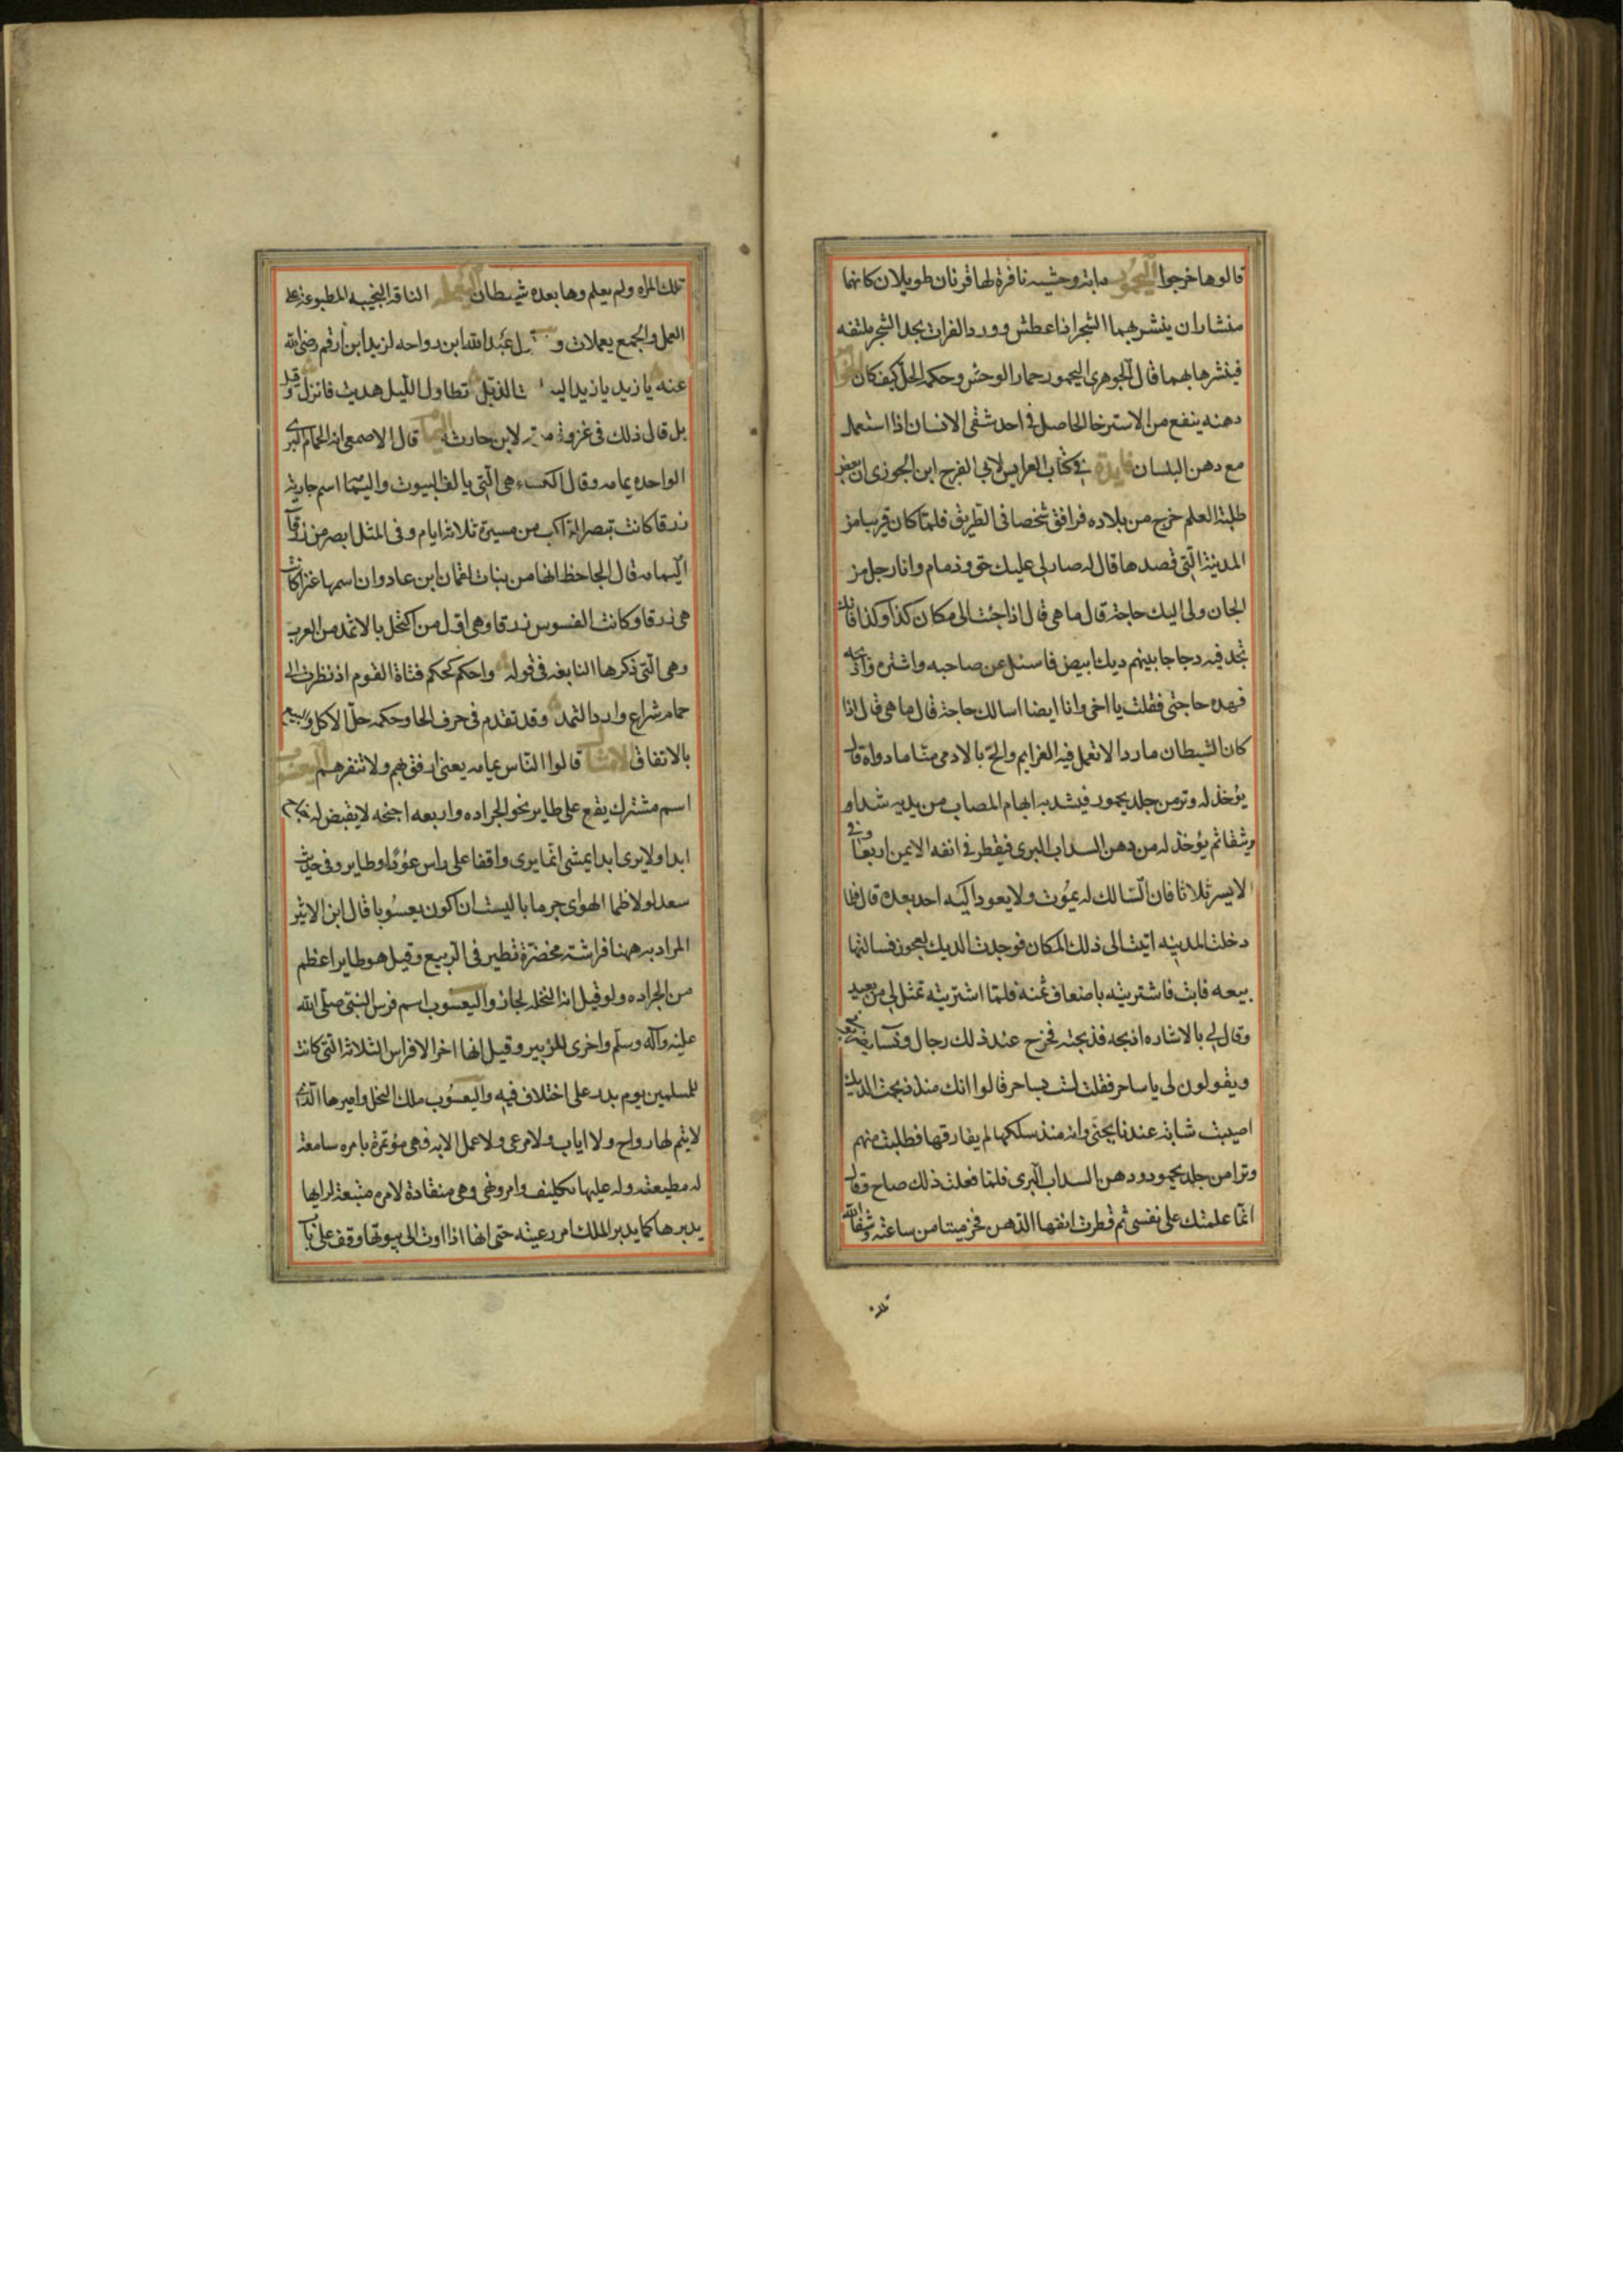 قالوها خرجوا اليحمور دابة وحشيه نافرة لها قرنان طويلان كانهما
منشاران ينشر بهما الشجر اذا عطش وورد الفرات يجد الشجر ملتفه
فينشرها بهما قال الجوهري اليحمور حمار الوحش وحكمه الحل كيف كان
دهنه ينفع من الاسترخا الحاصل في احد شقى الانسان اذا استعمل
مع دهن البلسان فايدة في كتاب العرايس لابى الفرج ابن الجوزى ان بعض
طلبة العلم خرج من بلاده فرافق شخصا فى الطريق فلما كان قريبا من
المدينة التى قصدها قال له صار لى عليك حق وذمام وانا رجل من
الجان ولى اليك حاجة قال ما هى قال اذا جئت الى مكان كذا وكذا فانك
تجد فيه دجاجا بينهم ديك ابيض فاسئل عن صاحبه واشتره واذبحه
فهذه حاجتى فقلت يا اخى وانا ايضا اسالك حاجة قال ما هى قال اذا
كان الشيطان ماردا لا تعمل فيه العزايم والح بالادمى منا ما دواه قال
يؤخذ له وتر من جلد يحمور فيشد به ابهام المصاب من يديه شدا و
ثيقا ثم يؤخذ له من دهن السداب البرى فيقطر فى انفه الايمن اربعا وفى
الايسر ثلاثا فان السالك له يموت ولا يعود اليه احد بعده قال فلما
دخلت المدينه اتيت الى ذلك المكان فوجدت الديك لعجوز فسالتها
بيعه فابت فاشتريته باضعاف ثمنه فلما اشتريته تمثل لى من بعيد
وقال لى بالاشاره اذبحه فذبحته فخرج عند ذلك رجال ونسا
ويقولون لى يا ساحر فقلت لست بساحر قالوا انك منذ ذبحت الديك
اصيبت شابة عندنا بجنى وانه منذ سلكها لم يفارقها فطلبت منهم
وترا من جلد يحمور ودهن السداب البرى فلما فعلت ذلك صاح وقال
انما علمتك على نفسى ثم قطرت انفها الدهن فخر ميتا من ساعته وشفا الله
تلك
تلك المراه ولم يعلم وها بعده شيطان اليعمله الناقة النجيبه المطبوعة على
العمل والجمع يعملات و عبد الله ابن رواحه لزيد ابن ارقم رضى الله
عنه يا زيد يا زيد الذبل تطاول الليل هديت فانزل وقيل
بل قال ذلك فى غزوة موته لابن حارثه اليمام قال الاصمعى انه الحمام البرى
الواحده يمامه وقال الكسائ هى التى يالف البيوت واليمامة اسم جارية
زرقا كانت تبصر الراكب من مسيرة ثلاثة ايام وفى المثل ابصر من زرقآ
اليمامه قال الجاحظ انها من بنات لقمان ابن عاد وان اسمها عنز كانت
هى زرقا وكانت البسوس زرقا وهى اول من اكتحل بالاثمد من العرب
وهى التى ذكرها النابغه فى قوله واحكم كحكم فتاة القوم اذ نظرت الى
حمام شراع وارد الثمد وقد تقدم فى حرف الحا وحكمه حل الاكل وبيع
بالاتفاق الامثال قالوا الناس يمامه يعنى ارفق بهم ولا تنفرهم اليعسوب
اسم مشترك يقع على طاير نحو الجراده واربعه اجنحه لا يقبض له جناح
ابدا ولا يرى ابدا يمشى انما يرى واقفا على راس عود او طاير وفى حديث
سعد لولا ظما الهواجر ما باليت ان اكون يعسوبا قال ابن الاثير
المراد به ههنا فراشة مخضرة تطير فى الربيع وقيل هو طاير اعظم
من الجراده ولو قيل انه النحله لجاز واليعسوب اسم فرس النبى صلى الله
عليه وآله وسلم واخرى للزبير وقيل انها اخر الافراس الثلاثة التى كانت
للمسلمين يوم بدر على اختلاف فيه واليعسوب ملك النحل واميرها الذى
لا يتم لها رواح ولا اياب ولا مرعى ولا عمل الا به فهى مؤتمرة بامره سامعة
له مطيعة وله عليها تكليف وامر ونهى وهى منقادة لامره متبعة لرايه
يدبرها كما يدبر الملك امر رعيته حتى انها اذا اوت الى بيوتها وقف على باب